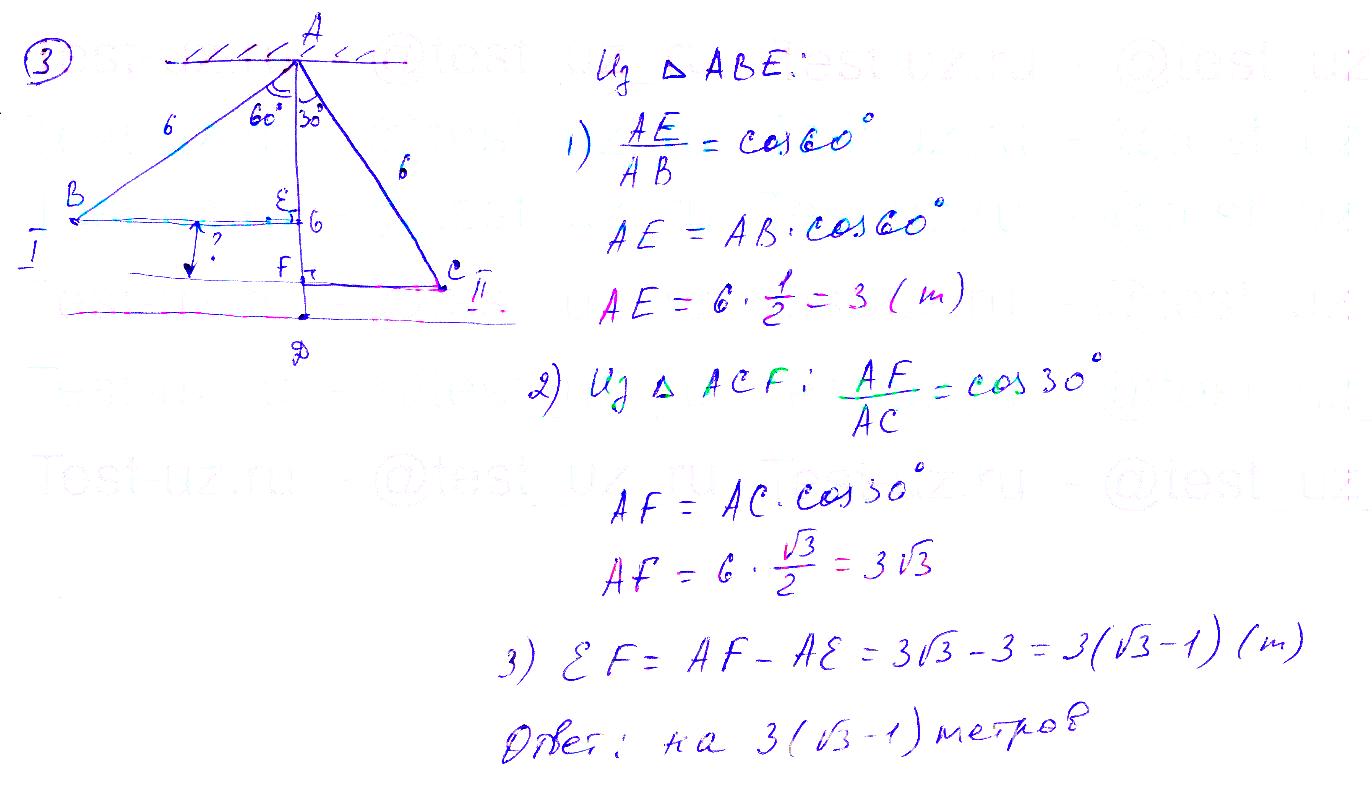 3
A
60° 30°
6
6
B
E
6
I
?
F
C
II
D
Из Δ ABE:
1) AE/AB = cos60°
AE = AB · cos60°
AE = 6 · 1/2 = 3 (m)
2) Из Δ ACF: AF/AC = cos30°
AF = AC · cos30°
AF = 6 · √3/2 = 3√3
3) EF = AF - AE = 3√3 - 3 = 3(√3-1) (m)
Ответ: на 3(√3-1) метров
Test-uz.ru - @test_uz.ru Test-uz.ru - @test_uz